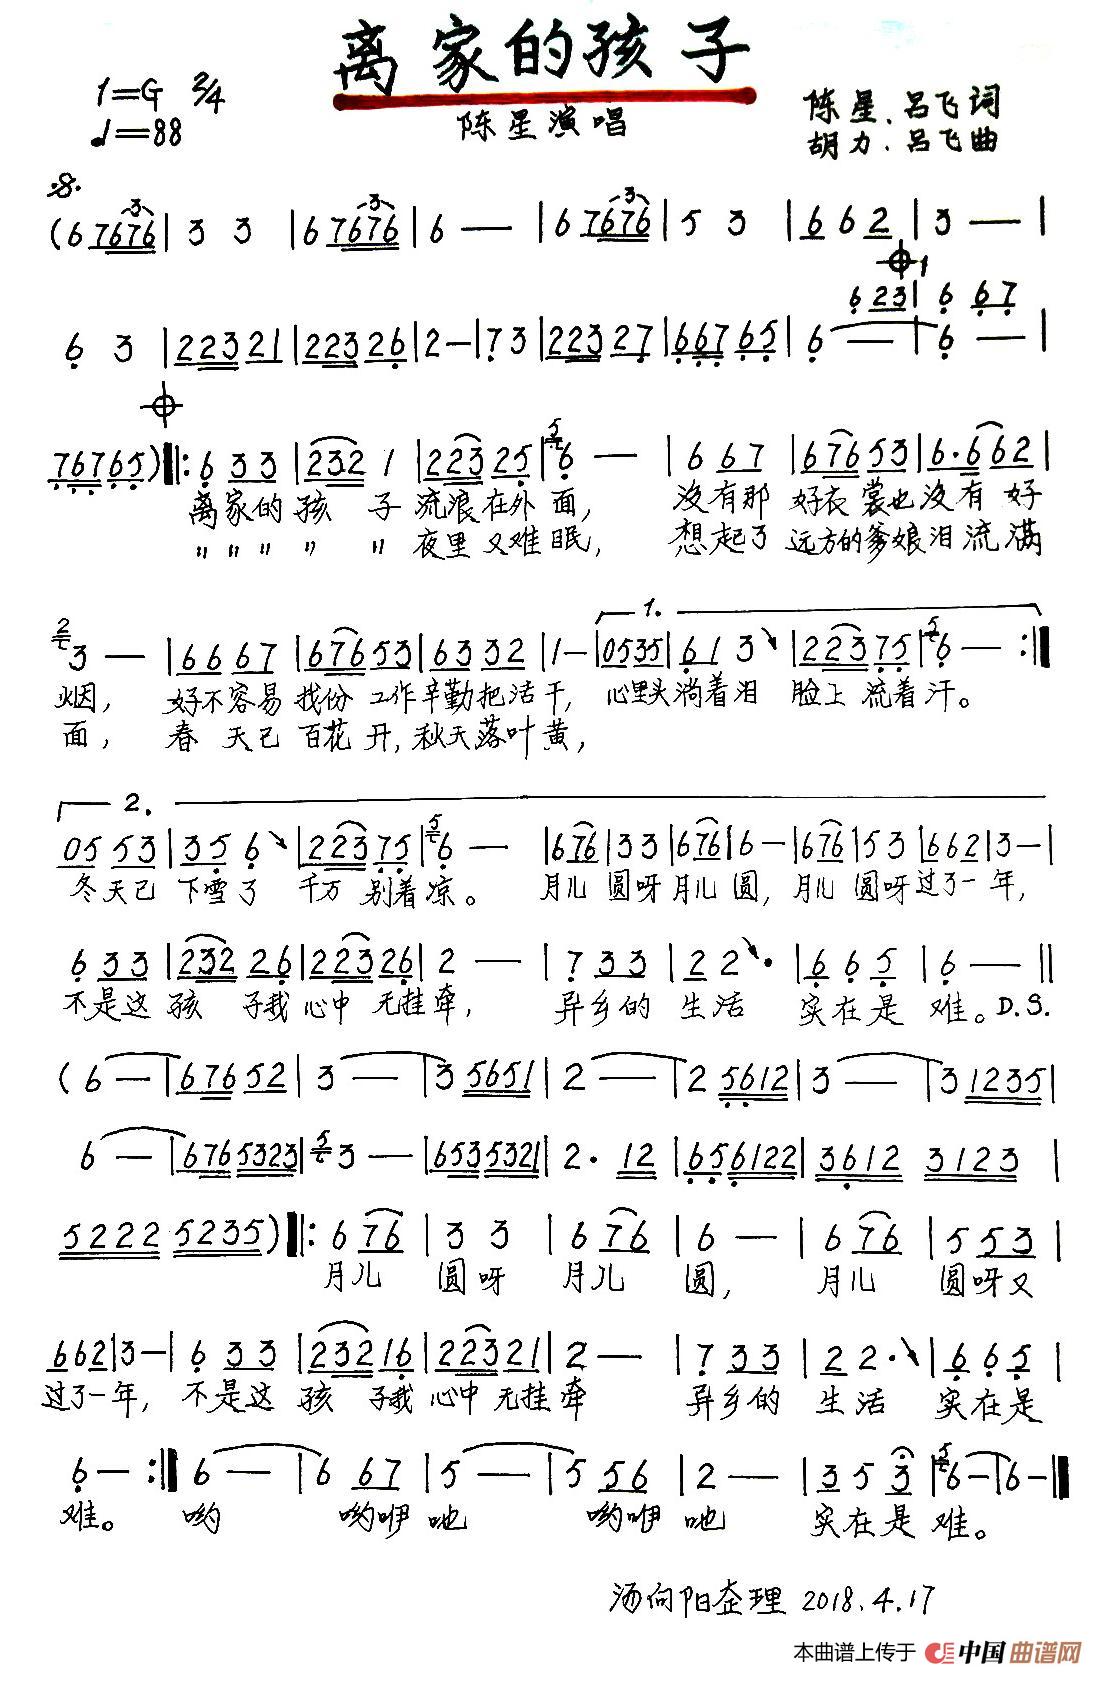 离家的孩子
1=G 2/4
♩=88
陈星演唱
陈星、吕飞词
胡力、吕飞曲
(6 7676 | 3 3 | 6 7676 | 6 — | 6 7676 | 5 3 | 6 6 2 | 3 — |
6 2 3 | 6 6 7
6 3 | 2 2 3 2 1 | 2 2 3 2 6 | 2 — | 7 3 | 2 2 3 2 7 | 6 6 7 6 5 | 6 — | 6 — |
7 6 7 6 5 ) ‖: 6 3 3 | 2 3 2 1 | 2 2 3 2 5 | 6 — | 6 6 7 | 6 7 6 5 3 | 6 · 6 6 2 |
离家的 孩 子 流浪在外 面, 没有那 好衣裳也没有好
〃 〃 〃 〃 〃 夜里又难眠, 想起了 远方的爹娘泪流满
1.
3 — | 6 6 6 7 | 6 7 6 5 3 | 6 3 3 2 | 1 — | 0 5 3 5 | 6 1 3 | 2 2 3 7 5 | 6 — :‖
烟, 好不容易找份工作辛勤把活干, 心里头淌着泪 脸上流着汗。
面, 春天已百花开, 秋天落叶黄,
2.
0 5 5 3 | 3 5 6 | 2 2 3 7 5 | 6 — | 6 7 6 | 3 3 | 6 7 6 | 6 — | 6 7 6 | 5 3 | 6 6 2 | 3 — |
冬天已 下雪了 千万别着凉。 月儿圆呀月儿圆, 月儿圆呀过了一年,
6 3 3 | 2 3 2 2 6 | 2 2 3 2 6 | 2 — | 7 3 3 | 2 2 · | 6 6 5 | 6 — ‖
不是这孩 子我心中无挂牵, 异乡的 生活 实在是 难。D.S.
( 6 — | 6 7 6 5 2 | 3 — | 3 5 6 5 1 | 2 — | 2 5 6 1 2 | 3 — | 3 1 2 3 5 |
6 — | 6 7 6 5 3 2 3 | 3 — | 6 5 3 5 3 2 1 | 2 · 1 2 | 6 5 6 1 2 2 | 3 6 1 2 3 1 2 3 |
5 2 2 2 5 2 3 5 ) ‖: 6 7 6 | 3 3 | 6 7 6 | 6 — | 6 7 6 | 5 5 3 |
月儿 圆呀 月儿 圆, 月儿 圆呀又
6 6 2 | 3 — | 6 3 3 | 2 3 2 1 6 | 2 2 3 2 1 | 2 — | 7 3 3 | 2 2 · | 6 6 5 |
过了一年, 不是这 孩 子我心中无挂牵 异乡的 生活 实在是
6 — :‖ 6 — | 6 6 7 | 5 — | 5 5 6 | 2 — | 3 5 3 | 6 — | 6 — ‖
难。 哟 哟咿吔 哟咿吔 实在是难。
汤向阳整理 2018.4.17
本曲谱上传于 中国曲谱网